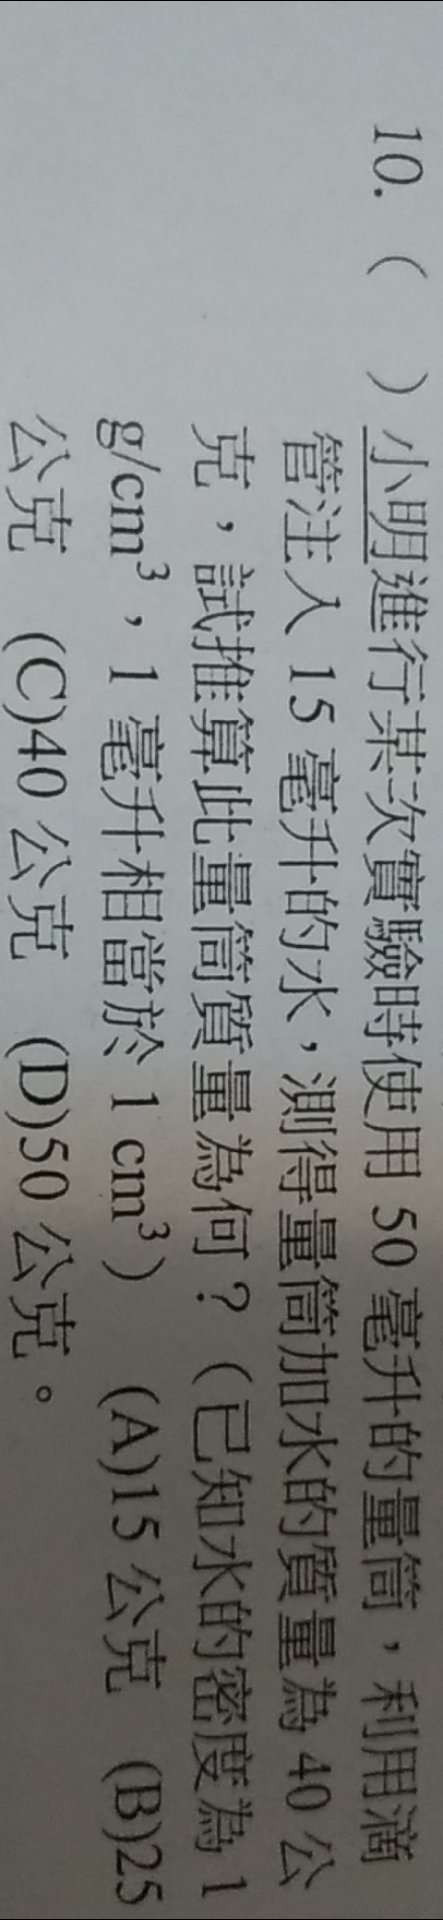 10. (　　) 小明進行某次實驗時使用 50 毫升的量筒，利用滴
管注入 15 毫升的水，測得量筒加水的質量為 40 公
克，試推算此量筒質量為何？（已知水的密度為 1
g/cm³，1 毫升相當於 1 cm³）　(A)15 公克　(B)25
公克　(C)40 公克　(D)50 公克。